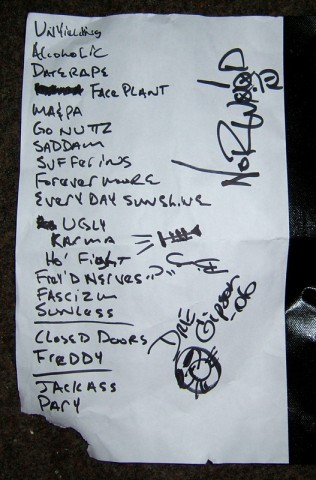 UNYiELDiNG
ALCOHOLiC
DATERAPE
FACEPLANT
MA&PA
GO NUTTZ
SADDAM
SUFFERiNG
FOREVERMORE
EVERYDAY SUNSHiNE
UGLY
KARMA
Ho' Fight
FRY'D NERVES
FASCiZM
SUNLESS
CLOSED DOORS
FREDDY
JACKASS
PARY
NORWOOD
DRE
Gipson